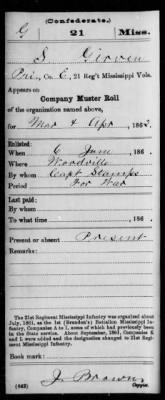 (Confederate.)
G 21 Miss.
S Girven
Pvt, Co. E, 21 Reg't Mississippi Vols.
Appears on
Company Muster Roll
of the organization named above,
for Mar & Apr, 1862.
Enlisted:
When 6 Jan, 186 .
Where Woodville
By whom Capt Stamps
Period For War
Last paid:
By whom
To what time , 186 .
Present or absent Present
Remarks:
The 21st Regiment Mississippi Infantry was organized about
July, 1861, as the 1st (Brandon's) Battalion Mississippi In-
fantry, Companies A to I, some of which had previously been
in the State service. About September, 1861, Companies K
and L were added and the designation changed to 21st Regi-
ment Mississippi Infantry.
Book mark:
J. Brown
(642) Copyist.